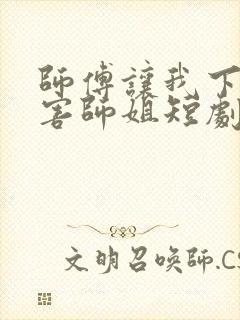 師傅讓我下
害師姐短劇
文明召喚師.CS